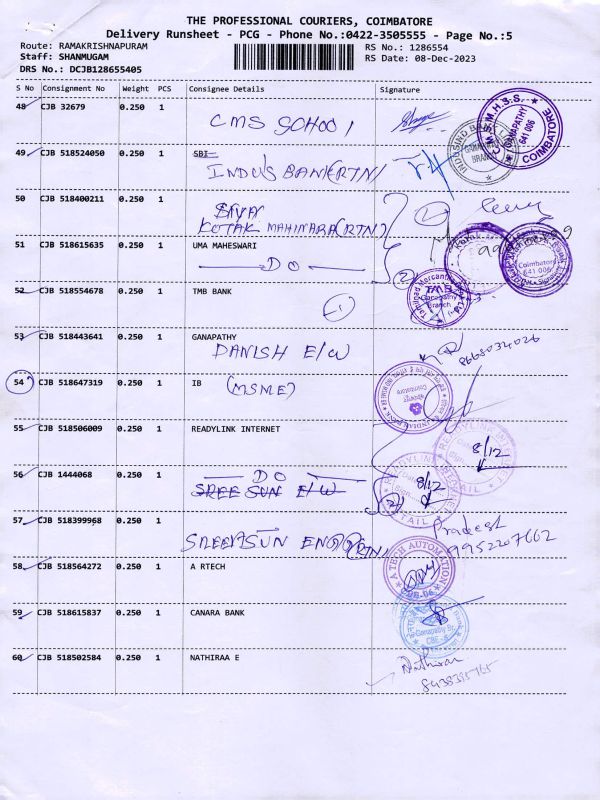 THE PROFESSIONAL COURIERS, COIMBATORE
Delivery Runsheet - PCG - Phone No.:0422-3505555 - Page No.:5
Route: RAMAKRISHNAPURAM RS No.: 1286554
Staff: SHANMUGAM RS Date: 08-Dec-2023
DRS No.: DCJB128655405
S No Consignment No Weight PCS Consignee Details Signature
48 CJB 32679 0.250 1
CMS SCHOOl
GANAPATHY
641 006
COIMBATORE
49 CJB 518524050 0.250 1 SBI
INDUS BANK(RTN)
BRANCH
50 CJB 518400211 0.250 1
KOTAK MAHINARA(RTN)
51 CJB 518615635 0.250 1 UMA MAHESWARI
DO (2)
Coimbatore
641 006
52 CJB 518554678 0.250 1 TMB BANK
1
TMB
Ganapathy
Branch
53 CJB 518443641 0.250 1 GANAPATHY
DANISH E/W
54 CJB 518647319 0.250 1 IB
(MSME)
55 CJB 518506009 0.250 1 READYLINK INTERNET
READYLINK INTERNET
8/12
56 CJB 1444068 0.250 1
DO
SREE SUN E/W
(2) 8/12
RETAIL
57 CJB 518399968 0.250 1
SREE SUN ENGG(RTN)
Pradesh
9952207662
58 CJB 518564272 0.250 1 A RTECH
A TECH AUTOMATION
CBE-06
59 CJB 518615837 0.250 1 CANARA BANK
Ganapathy Br.
CBE-6
60 CJB 518502584 0.250 1 NATHIRAA E
Nathiraa